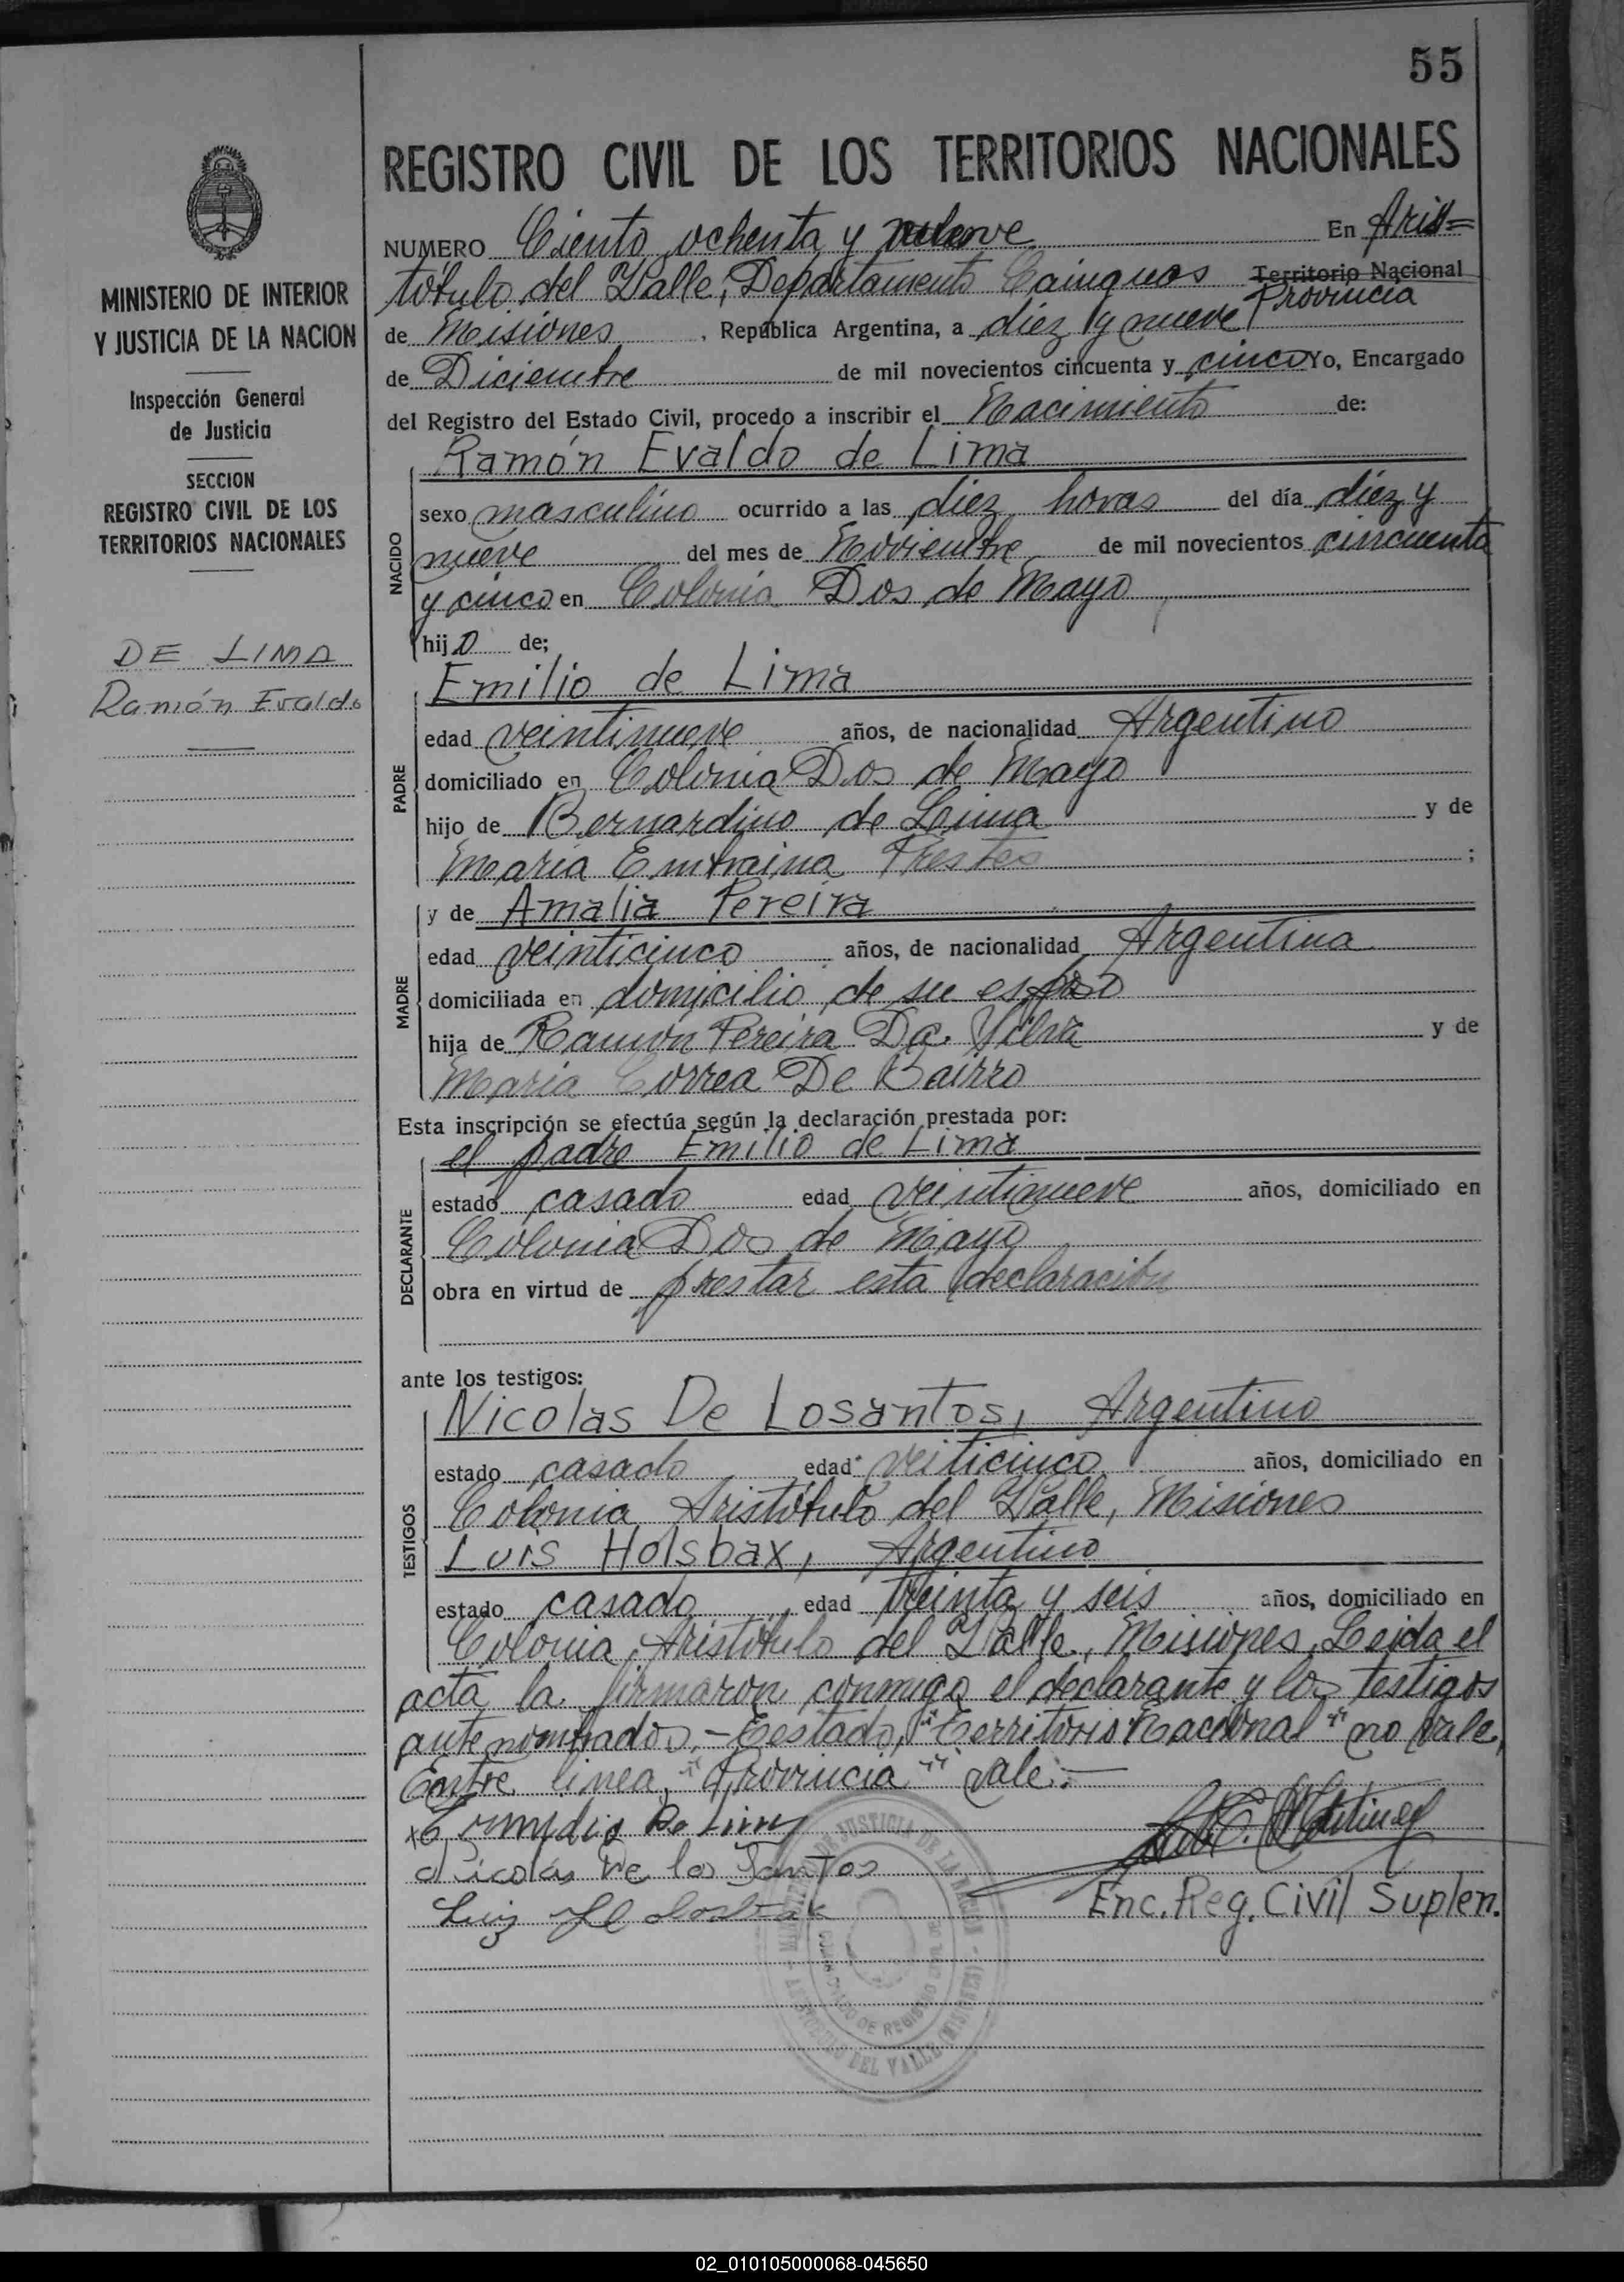 55
REGISTRO CIVIL DE LOS TERRITORIOS NACIONALES
MINISTERIO DE INTERIOR
Y JUSTICIA DE LA NACION
Inspección General
de Justicia
SECCION
REGISTRO CIVIL DE LOS
TERRITORIOS NACIONALES
DE LIMA
Ramón Evaldo
NUMERO Ciento ochenta y nueve En Aris=
tótulo del Valle, Departamento Cainguas Territorio Nacional
Provincia
de Misiones, República Argentina, a diez y nueve
de Diciembre de mil novecientos cincuenta y cinco Yo, Encargado
del Registro del Estado Civil, procedo a inscribir el Nacimiento de:
NACIDO
Ramón Evaldo de Lima
sexo masculino ocurrido a las diez horas del día diez y
nueve del mes de Noviembre de mil novecientos cincuenta
y cinco en Colonia Dos de Mayo
hijo de;
PADRE
Emilio de Lima
edad veintinueve años, de nacionalidad Argentino
domiciliado en Colonia Dos de Mayo
hijo de Bernardino de Leima y de
Maria Prestes;
MADRE
y de Amalia Pereira
edad veinticinco años, de nacionalidad Argentina
domiciliada en domicilio de su esposo
hija de Ramón Pereira Da. Silva y de
Maria Correa De Bairro
Esta inscripción se efectúa según la declaración prestada por:
DECLARANTE
el padre Emilio de Lima
estado casado edad veintinueve años, domiciliado en
Colonia Dos de Mayo
obra en virtud de prestar esta declaración
ante los testigos:
TESTIGOS
Nicolas De Losantos, Argentino
estado casado edad veiticinco años, domiciliado en
Colonia Aristótulo del Valle, Misiones
Luis Holsbax, Argentino
estado casado, edad treinta y seis años, domiciliado en
Colonia Aristótulo del Valle, Misiones, Leida el
acta la firmaron conmigo el declarante y los testigos
ante nombrados.- Testado, "Territorio Nacional" no vale,
Entre linea, "Provincia" vale.-
De Lima
Nicolás De los Santos
Luiz
Enc. Reg. Civil Suplen.
02_010105000068-045650